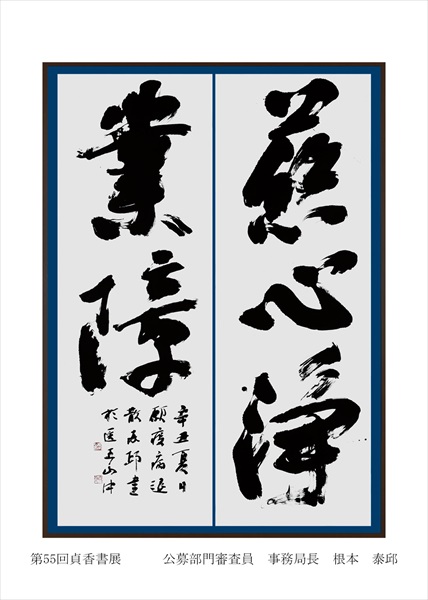 慈心淨
業障
辛丑夏日
願疫病退
散泰邱書
於医王山
第55回貞香書展　公募部門審査員　事務局長　根本　泰邱